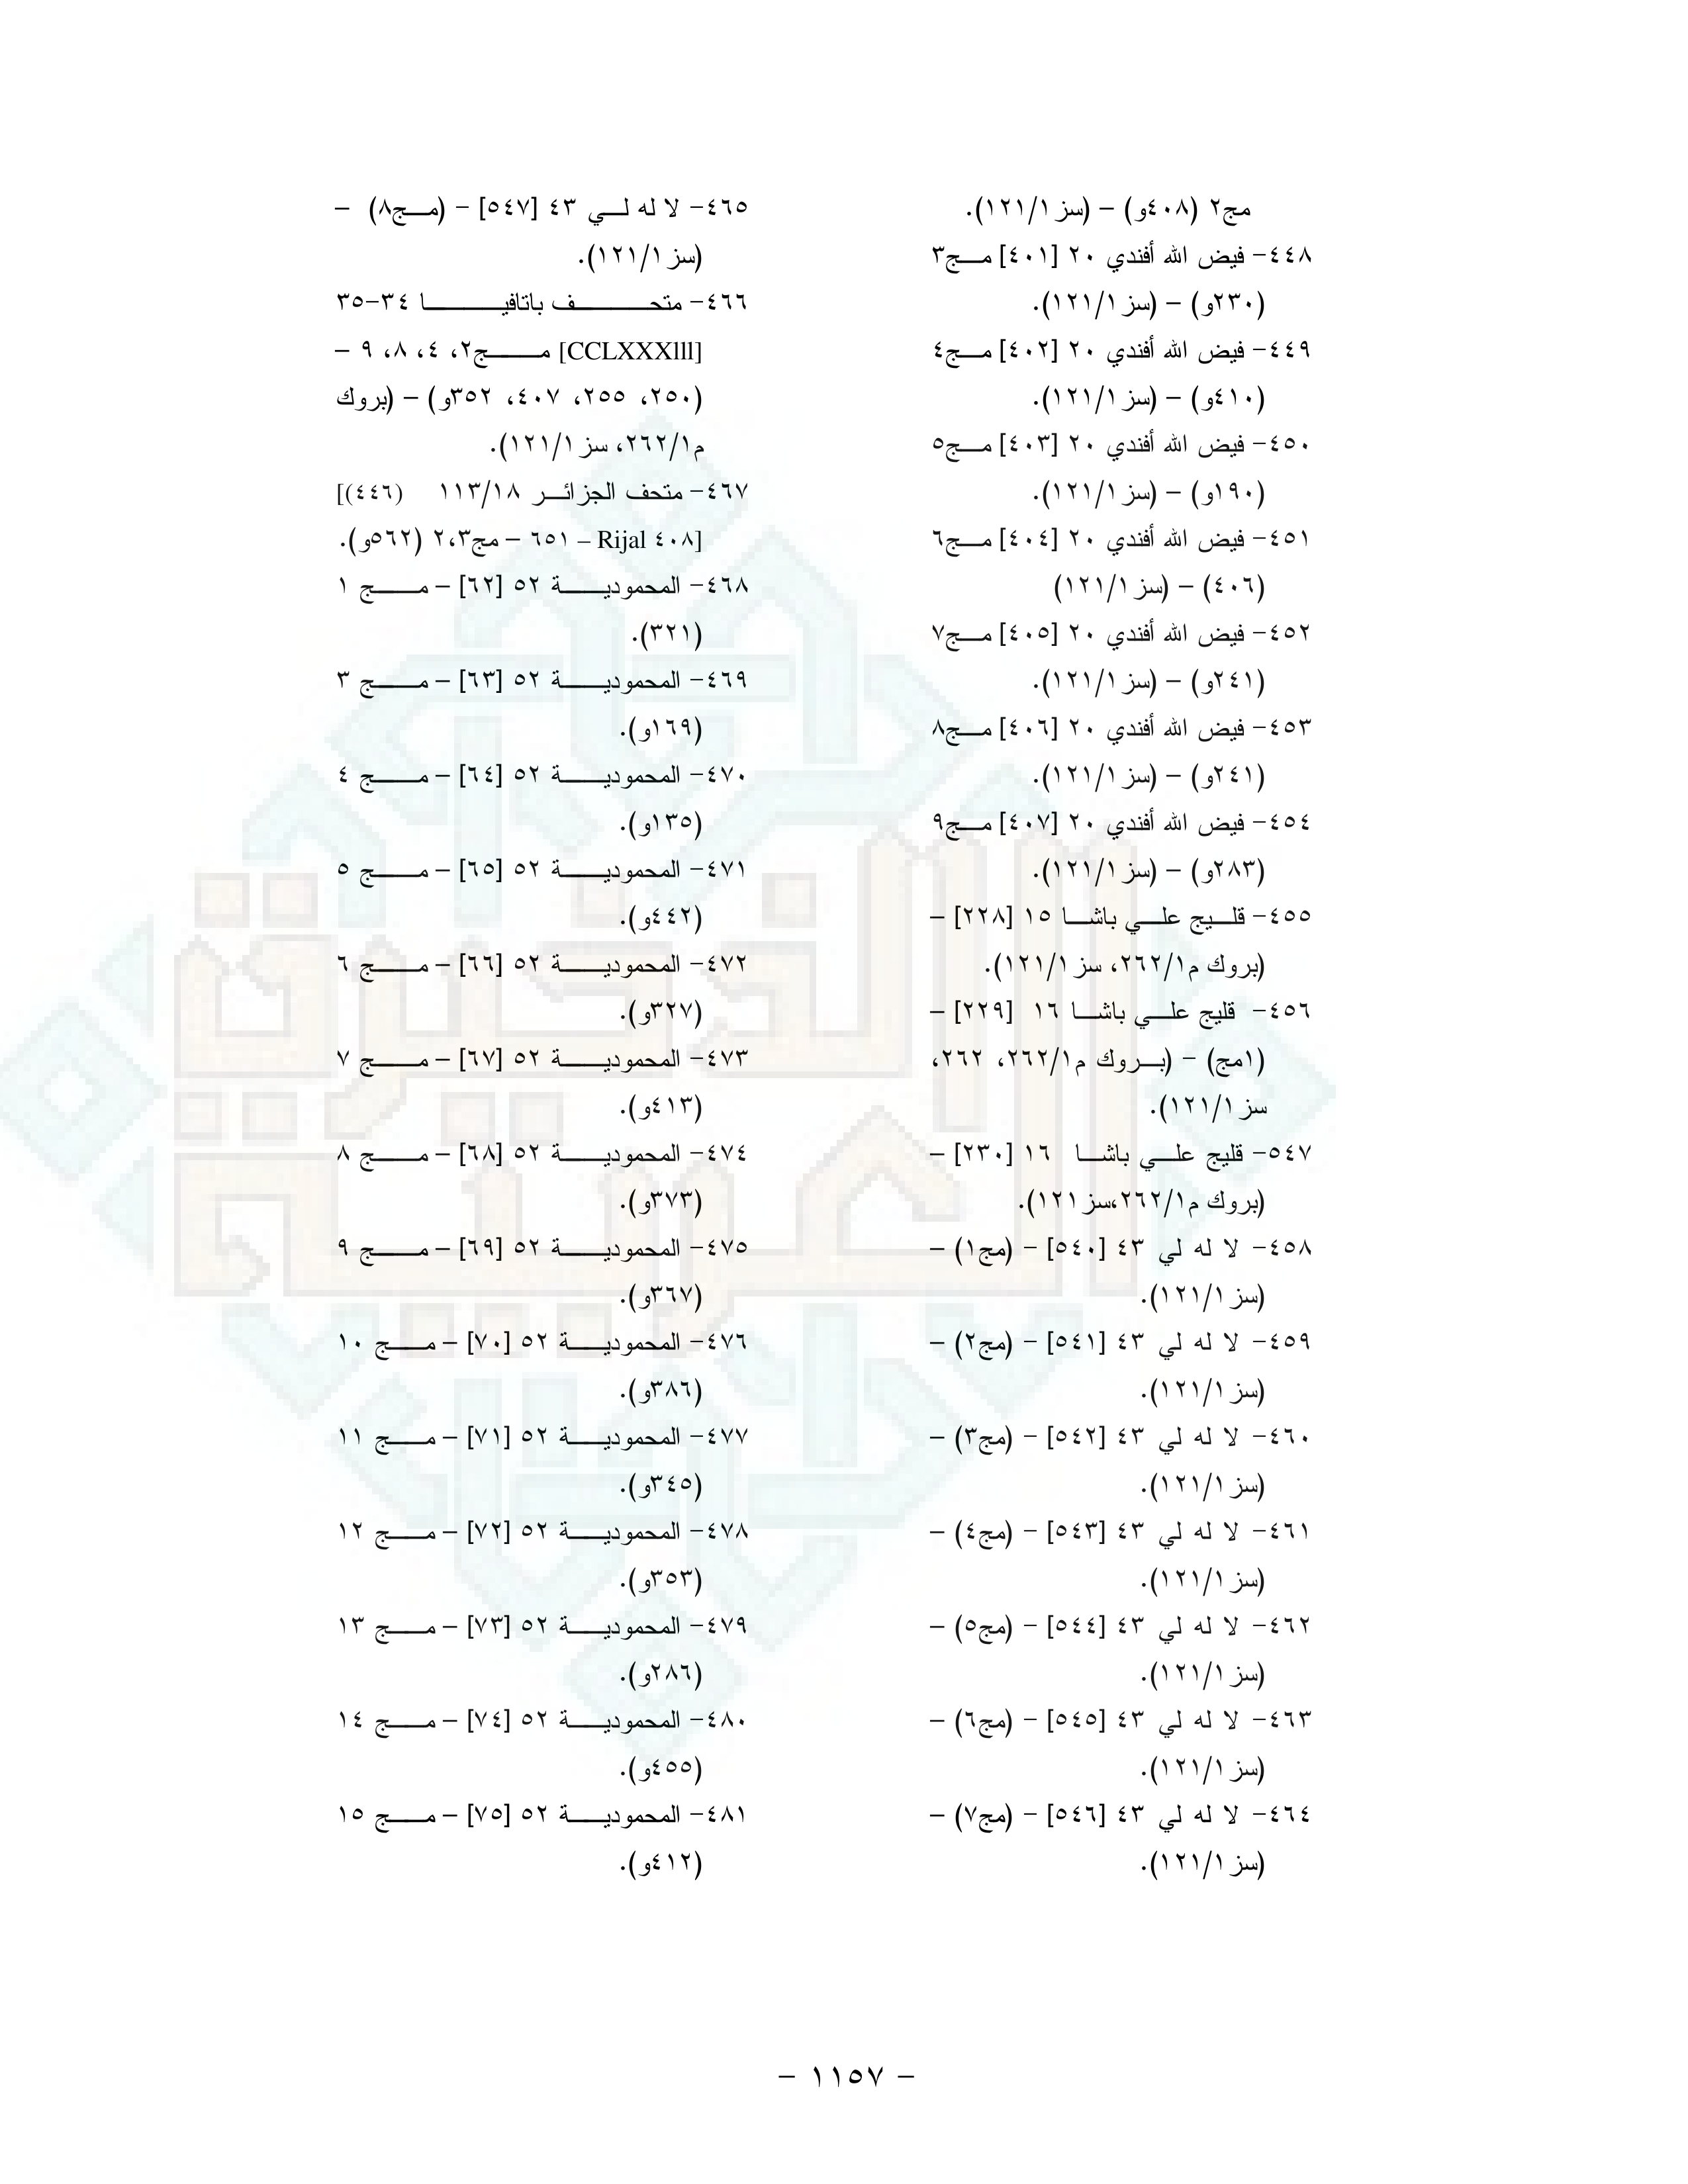 مج٢ (٤٠٨و) – (سز١/١٢١).
٤٤٨- فيض الله أفندي ٢٠ [٤٠١] مج٣
(٢٣٠و) – (سز١/١٢١).
٤٤٩- فيض الله أفندي ٢٠ [٤٠٢] مج٤
(٤١٠و) – (سز١/١٢١).
٤٥٠- فيض الله أفندي ٢٠ [٤٠٣] مج٥
(١٩٠و) – (سز١/١٢١).
٤٥١- فيض الله أفندي ٢٠ [٤٠٤] مج٦
(٤٠٦) – (سز١/١٢١)
٤٥٢- فيض الله أفندي ٢٠ [٤٠٥] مج٧
(٢٤١و) – (سز١/١٢١).
٤٥٣- فيض الله أفندي ٢٠ [٤٠٦] مج٨
(٢٤١و) – (سز١/١٢١).
٤٥٤- فيض الله أفندي ٢٠ [٤٠٧] مج٩
(٢٨٣و) – (سز١/١٢١).
٤٥٥- قليج علي باشا ١٥ [٢٢٨] –
(بروك م١/٢٦٢، سز١/١٢١).
٤٥٦- قليج علي باشا ١٦ [٢٢٩] –
(١مج) – (بروك م١/٢٦٢، ٢٦٢،
سز١/١٢١).
٥٤٧- قليج علي باشا ١٦ [٢٣٠] –
(بروك م١/٢٦٢،سز١٢١).
٤٥٨- لا له لي ٤٣ [٥٤٠] – (مج١) –
(سز١/١٢١).
٤٥٩- لا له لي ٤٣ [٥٤١] – (مج٢) –
(سز١/١٢١).
٤٦٠- لا له لي ٤٣ [٥٤٢] – (مج٣) –
(سز١/١٢١).
٤٦١- لا له لي ٤٣ [٥٤٣] – (مج٤) –
(سز١/١٢١).
٤٦٢- لا له لي ٤٣ [٥٤٤] – (مج٥) –
(سز١/١٢١).
٤٦٣- لا له لي ٤٣ [٥٤٥] – (مج٦) –
(سز١/١٢١).
٤٦٤- لا له لي ٤٣ [٥٤٦] – (مج٧) –
(سز١/١٢١).
٤٦٥- لا له لي ٤٣ [٥٤٧] – (مج٨) –
(سز١/١٢١).
٤٦٦- متحف باتافيا ٣٤-٣٥
[CCLXXXlll] مج٢، ٤، ٨، ٩ –
(٢٥٠، ٢٥٥، ٤٠٧، ٣٥٢و) – (بروك
م١/٢٦٢، سز١/١٢١).
٤٦٧- متحف الجزائر ١١٣/١٨ (٤٤٦)]
[٤٠٨ Rijal – ٦٥١ – مج٢،٣ (٥٦٢و).
٤٦٨- المحمودية ٥٢ [٦٢] – مج ١
(٣٢١).
٤٦٩- المحمودية ٥٢ [٦٣] – مج ٣
(١٦٩و).
٤٧٠- المحمودية ٥٢ [٦٤] – مج ٤
(١٣٥و).
٤٧١- المحمودية ٥٢ [٦٥] – مج ٥
(٤٤٢و).
٤٧٢- المحمودية ٥٢ [٦٦] – مج ٦
(٣٢٧و).
٤٧٣- المحمودية ٥٢ [٦٧] – مج ٧
(٤١٣و).
٤٧٤- المحمودية ٥٢ [٦٨] – مج ٨
(٣٧٣و).
٤٧٥- المحمودية ٥٢ [٦٩] – مج ٩
(٣٦٧و).
٤٧٦- المحمودية ٥٢ [٧٠] – مج ١٠
(٣٨٦و).
٤٧٧- المحمودية ٥٢ [٧١] – مج ١١
(٣٤٥و).
٤٧٨- المحمودية ٥٢ [٧٢] – مج ١٢
(٣٥٣و).
٤٧٩- المحمودية ٥٢ [٧٣] – مج ١٣
(٢٨٦و).
٤٨٠- المحمودية ٥٢ [٧٤] – مج ١٤
(٤٥٥و).
٤٨١- المحمودية ٥٢ [٧٥] – مج ١٥
(٤١٢و).
الذخيرة
العربية
– ١١٥٧ –